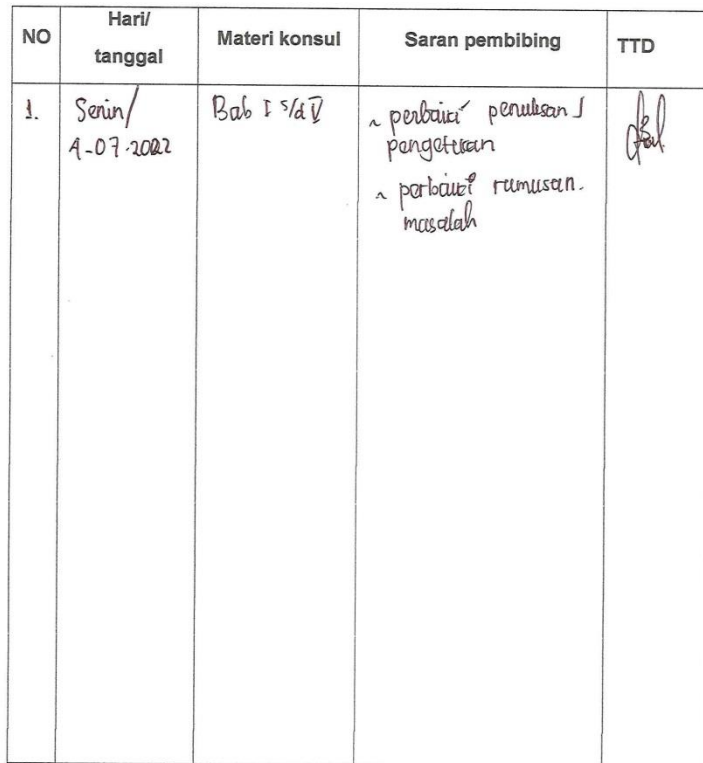 NO
Hari/
tanggal
Materi konsul
Saran pembibing
TTD
1.
Senin/
4-07-2022
Bab I s/d V
~ perbaiki penulisan /
pengetikan
~ perbaiki rumusan.
masalah